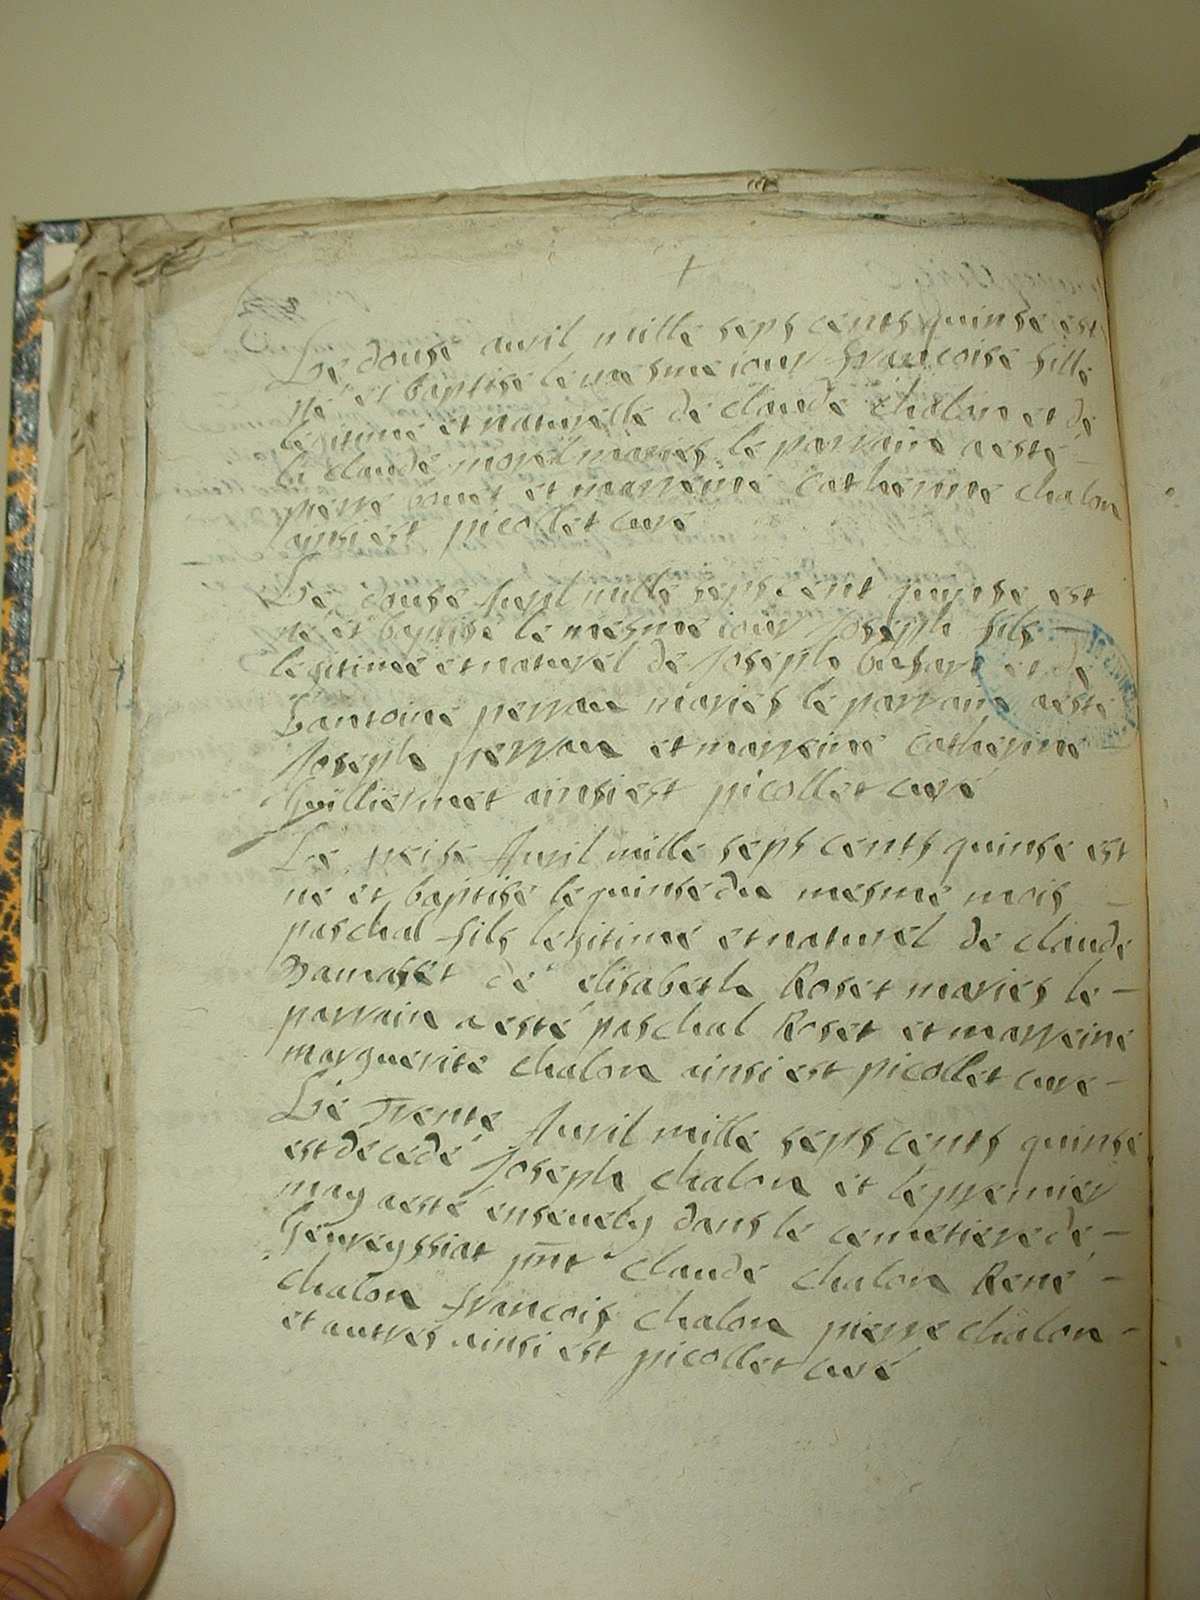 Le douse auril mille seps cents quinse est
né et baptisé le mesme iour francoise fille
legitime et naturelle de claude chalon et de
la claude morel mariés le parrain a esté
pierre et marreine catherine chalon
ainsi est picollet curé
Le douse Auril mille seps cent quinse est
né et baptisé le mesme iour Joseph fils
legitime et naturel de Joseph et de
antoine perrau mariés le parrain a esté
Joseph perrau et marreine catherine
Guilliermet ainsi est picollet curé
Le treise Auril mille seps cents quinse est
né et baptisé le quinse du mesme mois
paschal fils legitime et naturel de claude
et de elisabeth Roset mariés le
parrain a esté paschal Roset et marreine
marguerite chalon ainsi est picollet curé
Le Trente Auril mille seps cents quinse
est décédé Joseph chalon et le premier
may a esté enseuely dans le cemetiere de
Geureyssiat pnt claude chalon René
chalon francois chalon pierre chalon
et autres ainsi est picollet curé